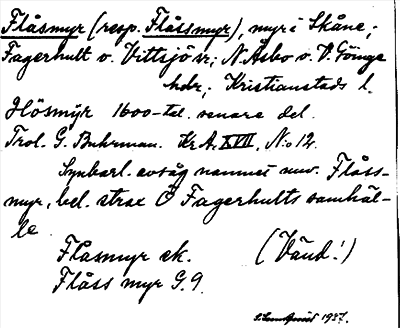 Flåsmyr (resp. Flåssmyr), myr i Skåne;
Fagerhult o. Vittsjö sr; N. Åsbo o. V. Göinge
hdr; Kristianstads l.
Hösmÿr 1600-tal. senare del.
Trol. G. Buhrman. Kr A. XVII, N:o 12.
Synbarl. avsåg namnet nuv. Flåss-
myr, bel. strax Ö Fagerhults samhäl-
le.
Flåsmyr ek. (Vänd!)
Flåss myr G. 9.
1937.